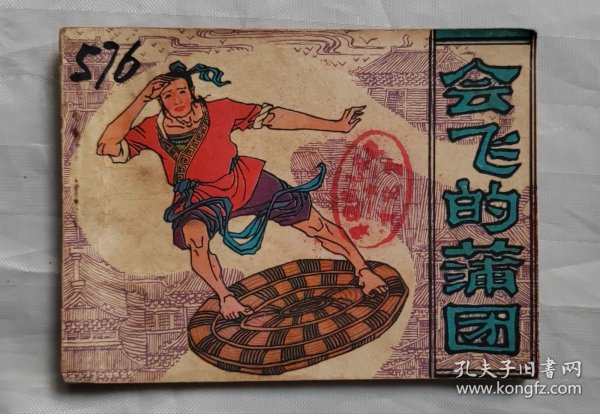 576
会飞的蒲团
孔夫子旧书网
www.kongfz.com